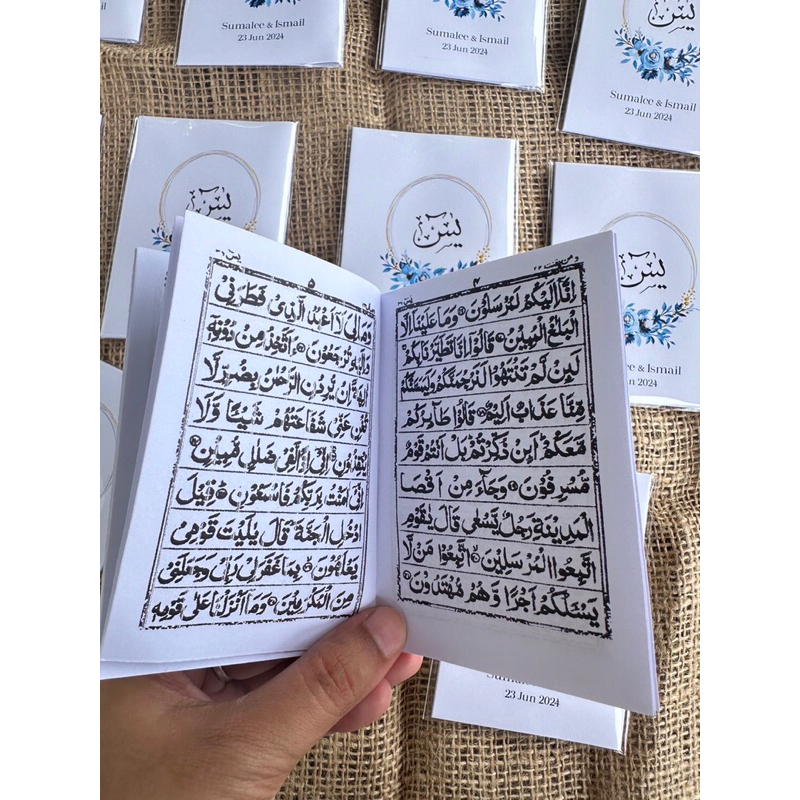 يس
Sumalee & Ismail
23 Jun 2024
Sumalee & Ismail
23 Jun 2024
Sumalee & Ismail
23 Jun 2024
يس
يس
يس
٤
اِنَّاۤ اِلَيْكُمْ لَمُرْسَلُوْنَ ۝ وَمَا عَلَيْنَاۤ اِلَّا
الْبَلٰغُ الْمُبِيْنُ ۝ قَالُوْۤا اِنَّا تَطَيَّرْنَا بِكُمْ
لَئِنْ لَّمْ تَنْتَهُوْا لَنَرْجُمَنَّكُمْ وَلَيَمَسَّنَّكُمْ
مِّنَّا عَذَابٌ اَلِيْمٌ ۝ قَالُوْا طَآئِرُكُمْ
مَّعَكُمْ اَئِنْ ذُكِّرْتُمْ بَلْ اَنْتُمْ قَوْمٌ
مُّسْرِفُوْنَ ۝ وَجَآءَ مِنْ اَقْصَا
الْمَدِيْنَةِ رَجُلٌ يَّسْعٰى قَالَ يٰقَوْمِ
اتَّبِعُوا الْمُرْسَلِيْنَ ۝ اتَّبِعُوْا مَنْ لَّا
يَسْئَلُكُمْ اَجْرًا وَّهُمْ مُّهْتَدُوْنَ ۝
٥
وَمَا لِيَ لَاۤ اَعْبُدُ الَّذِيْ فَطَرَنِيْ
وَاِلَيْهِ تُرْجَعُوْنَ ۝ ءَاَتَّخِذُ مِنْ دُوْنِهٖۤ
اٰلِهَةً اِنْ يُّرِدْنِ الرَّحْمٰنُ بِضُرٍّ لَّا
تُغْنِ عَنِّيْ شَفَاعَتُهُمْ شَيْئًا وَّلَا
يُنْقِذُوْنِ ۝ اِنِّيْۤ اِذًا لَّفِيْ ضَلٰلٍ مُّبِيْنٍ ۝
اِنِّيْۤ اٰمَنْتُ بِرَبِّكُمْ فَاسْمَعُوْنِ ۝ قِيْلَ
ادْخُلِ الْجَنَّةَ قَالَ يٰلَيْتَ قَوْمِيْ
يَعْلَمُوْنَ ۝ بِمَا غَفَرَ لِيْ رَبِّيْ وَجَعَلَنِيْ
مِنَ الْمُكْرَمِيْنَ ۝ وَمَاۤ اَنْزَلْنَا عَلٰى قَوْمِهٖ
23 Jun 2024